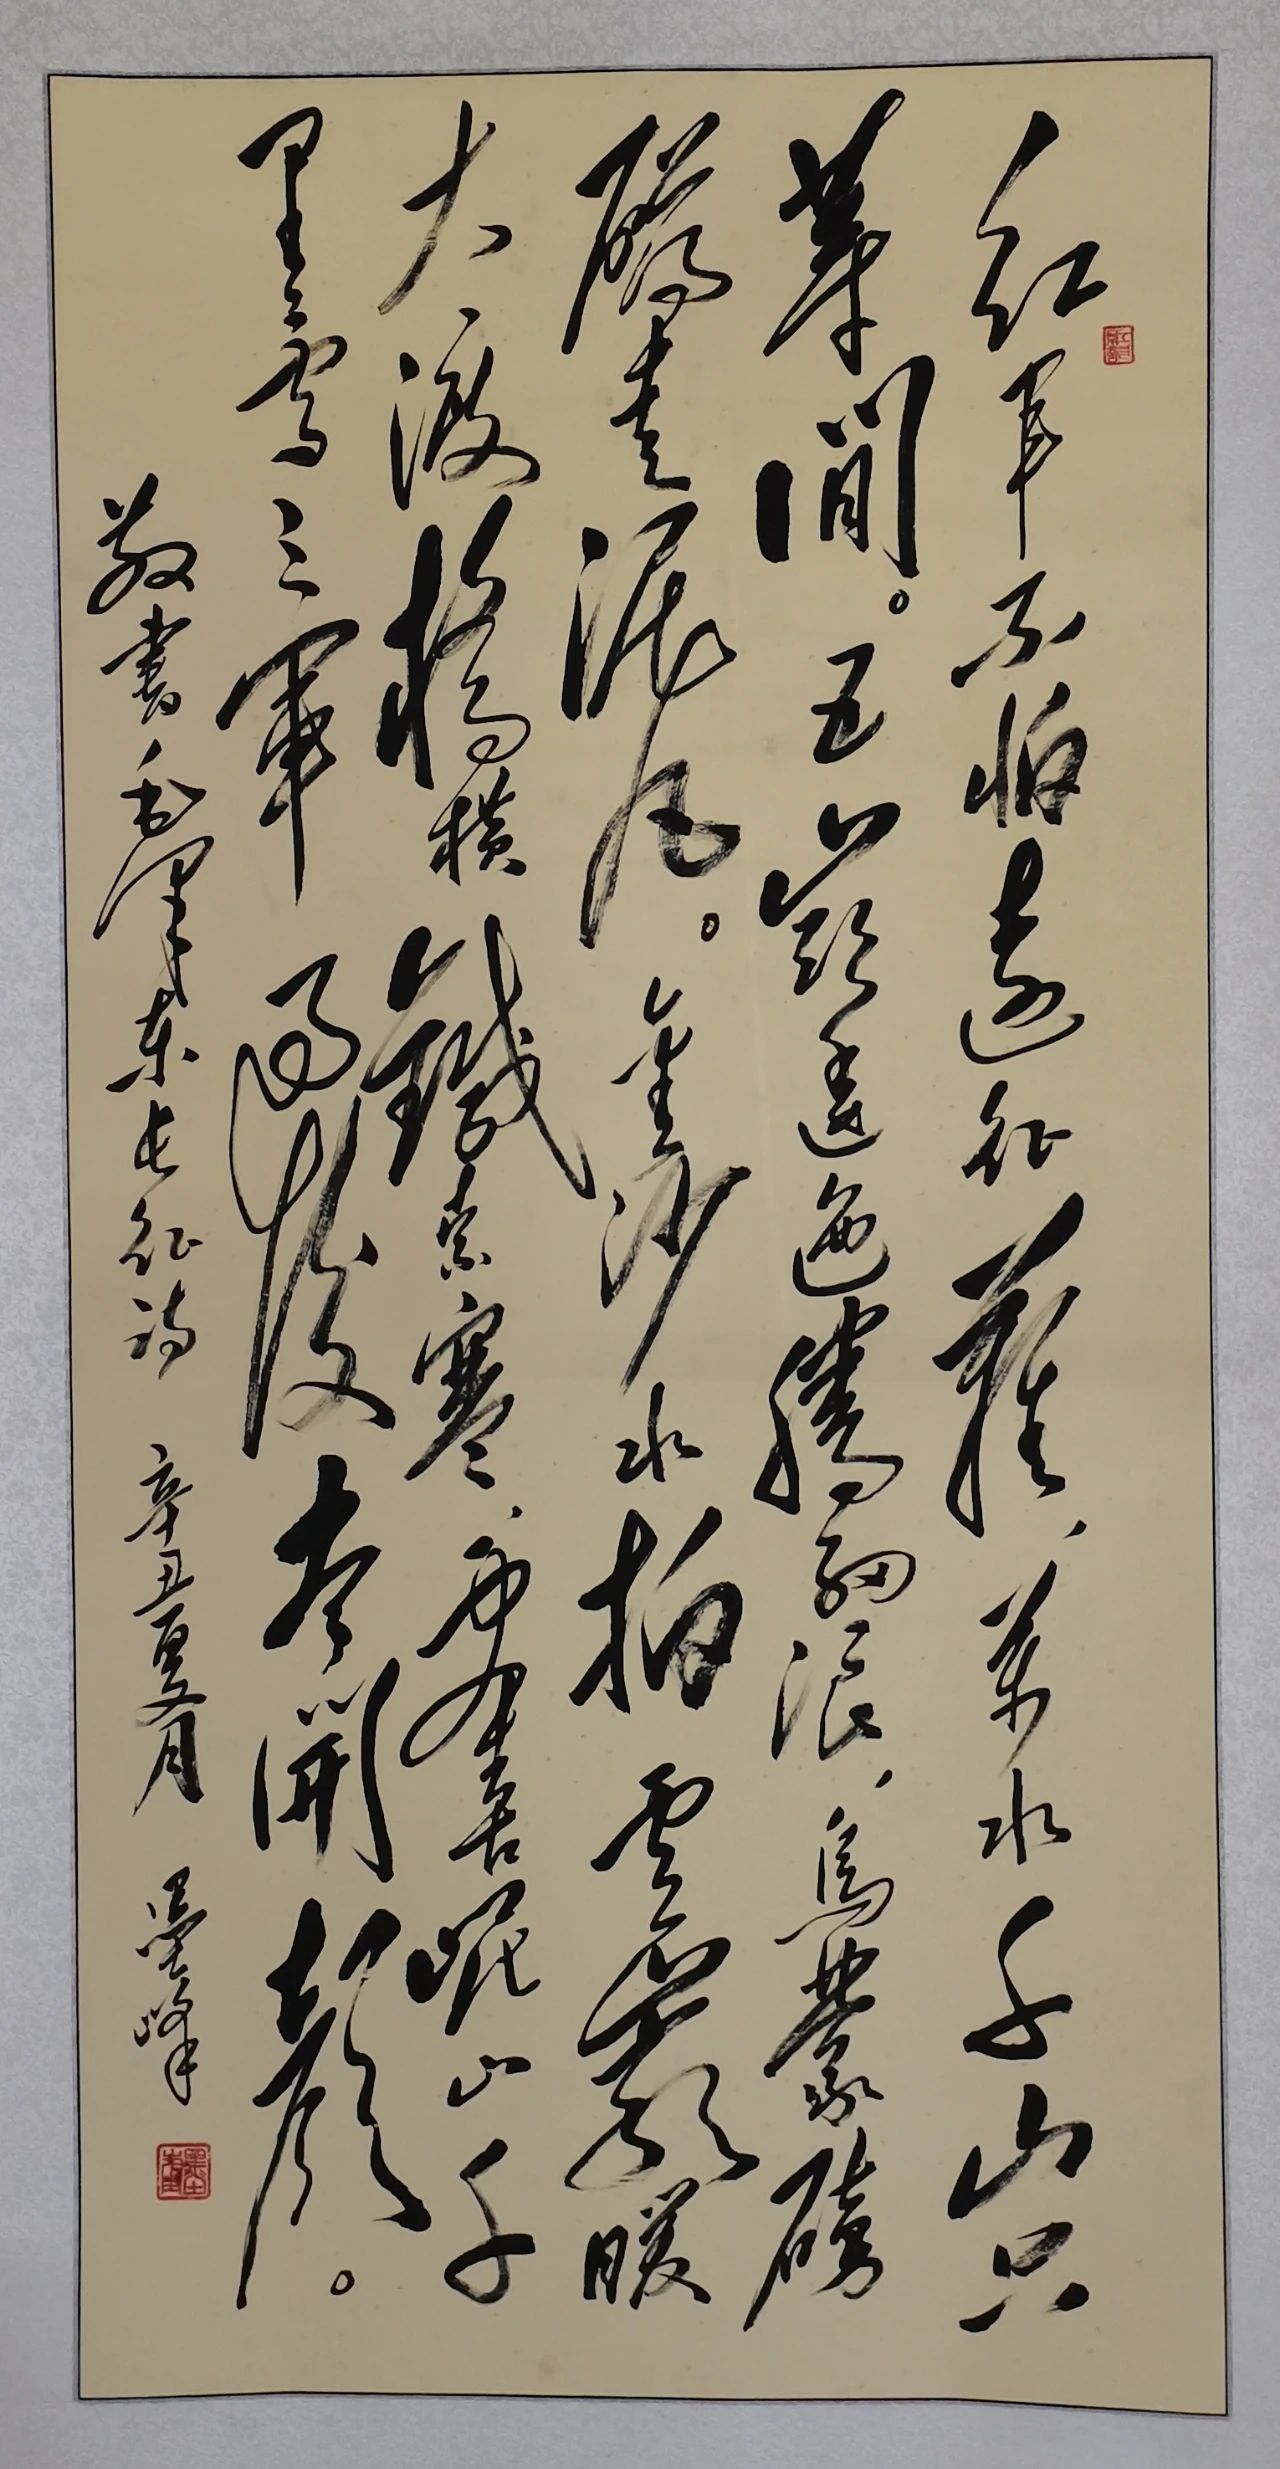 红军不怕远征難、萬水千山只
等閒。五嶺逶迤腾細浪、烏蒙磅
礴走泥丸。金沙水拍雲崖暖
大渡橋横鐵索寒、更喜岷山千
里雪三軍過後盡開顏。
敬書毛澤東长征诗 辛丑夏月 墨峰